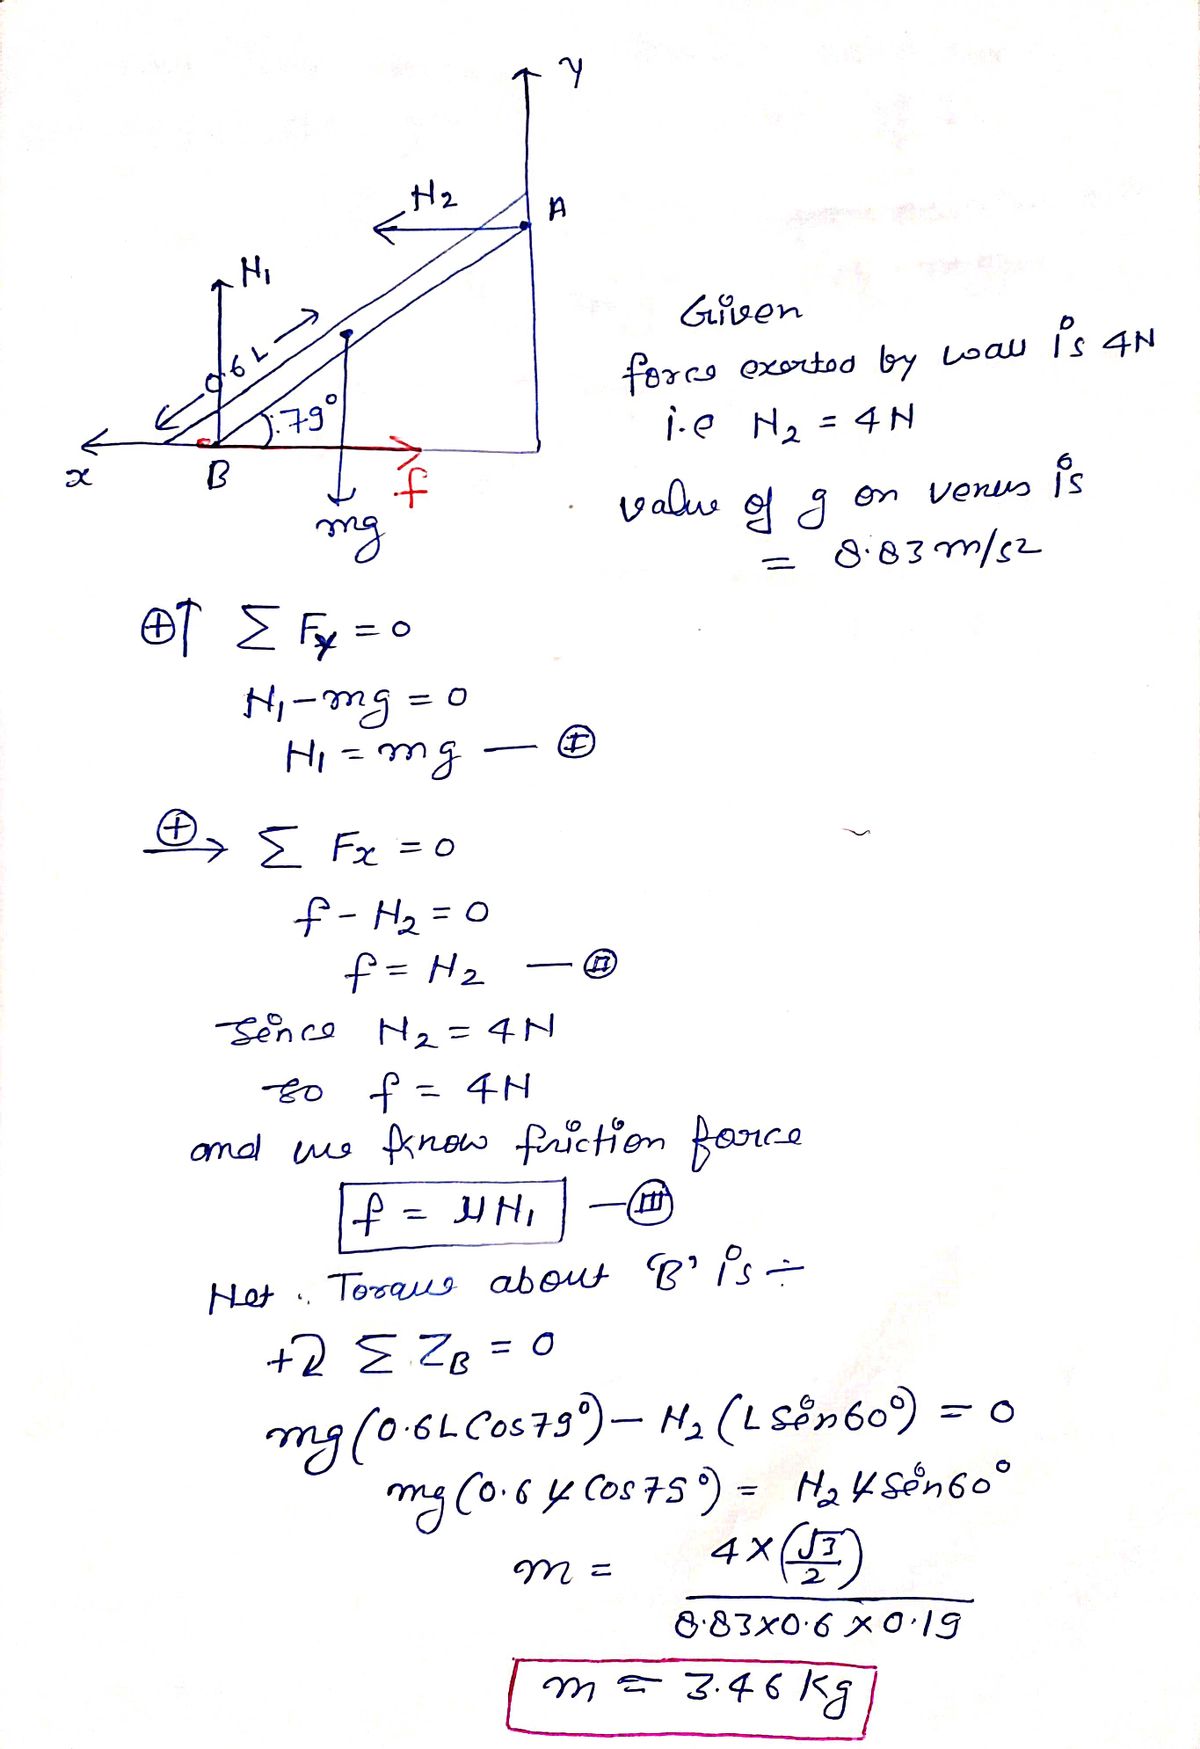 y
N₂
A
N₁
0.6L
79°
x
B
f
mg
Given
force exerted by wall is 4N
i.e N₂ = 4N
value of g on venus is
= 8.83 m/s2
⊕↑ Σ Fy = 0
N₁ - mg = 0
N₁ = mg — Ⓘ
⊕→ Σ Fx = 0
f - N₂ = 0
f = N₂ — Ⓘ Ⓘ
Since N₂ = 4N
so f = 4N
and we know friction force
f = μN₁ — Ⓘ Ⓘ Ⓘ
Net Torque about 'B' is ÷
+↻ Σ ZB = 0
mg(0.6L Cos79°) - N₂ (L Sin60°) = 0
mg(0.6L Cos75°) = N₂ L Sin60°
m = 4×(√3/2)
8.83×0.6×0.19
m = 3.46 Kg